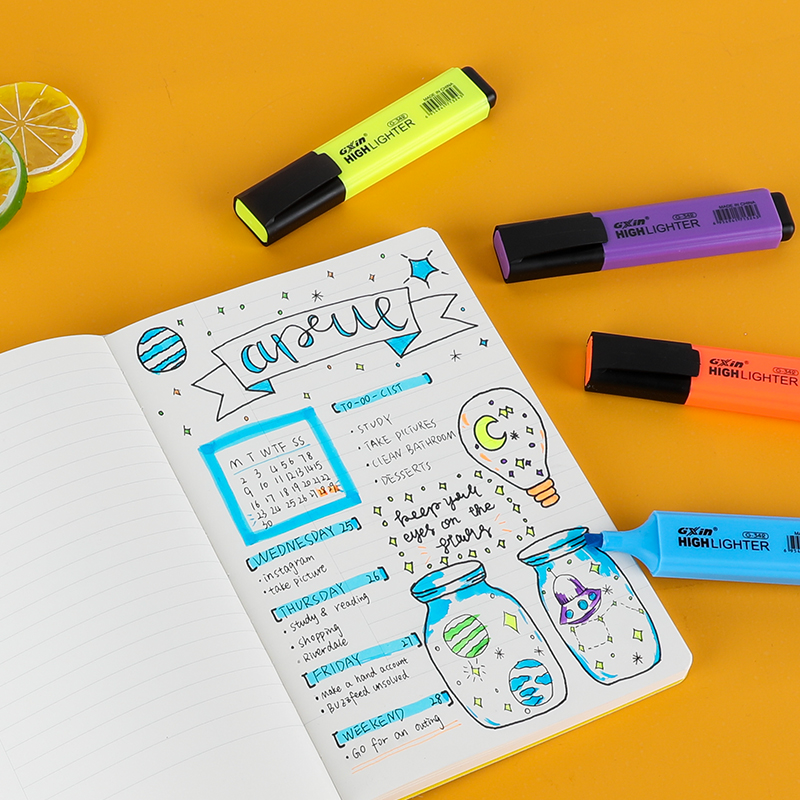 GXin G-348 MADE IN CHINA
HIGHLIGHTER
GXin G-348 MADE IN CHINA
HIGHLIGHTER
GXin G-348
HIGHLIGHTER
GXin G-348
HIGHLIGHTER
M T W T F S S
2 3 4 5 6 7 8
9 10 11 12 13 14 15
16 17 18 19 20 21 22
23 24 25 26 27 28 29
30
WEDNESDAY 25
• instagram
• take picture
THURSDAY 26
• study & reading
• shopping
• Riverdale
FRIDAY 27
• make a hand account
• Buzzfeed unsolved
WEEKEND 28
• GO for an outing
TO-OO-CIST
• STUDY
• TAKE PICTURES
• CLEAN BATHROOM
• DESSERTS
keep your
eyes on the
stars